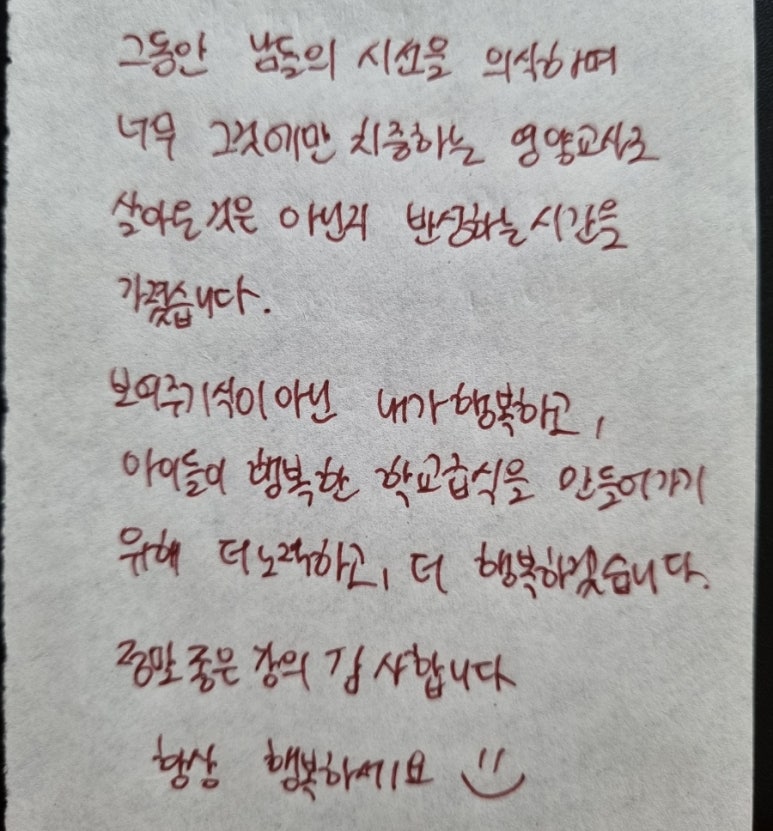 그동안 남들의 시선을 의식하며
너무 그것에만 치중하는 영양교사로
살아온것은 아닌지 반성하는 시간을
가졌습니다.
보여주기식이 아닌 내가 행복하고,
아이들이 행복한 학교급식을 만들어가기
위해 더 노력하고, 더 행복하겠습니다.
정말 좋은 강의 감사합니다
항상 행복하세요